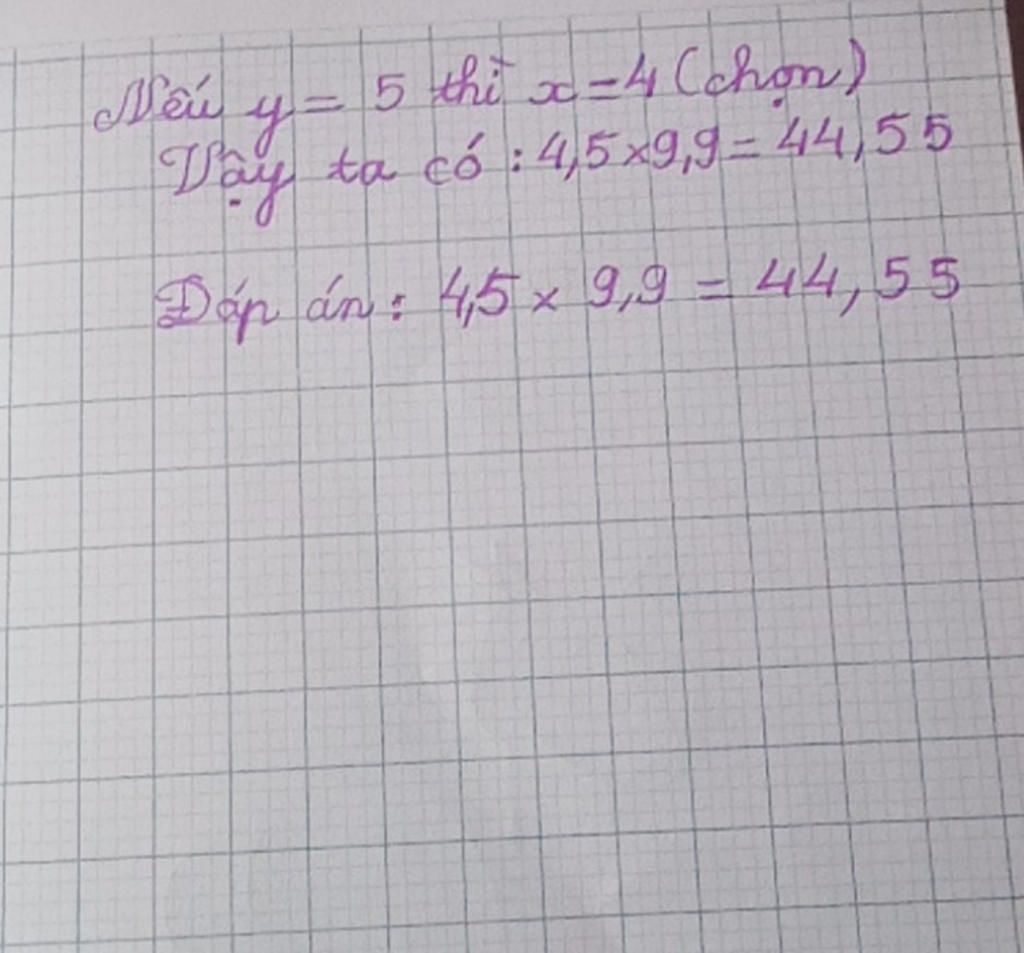 Nếu y = 5 thì x = 4 (chọn)
Vậy ta có : 4,5 × 9,9 = 44,55
Đáp án : 4,5 × 9,9 = 44,55